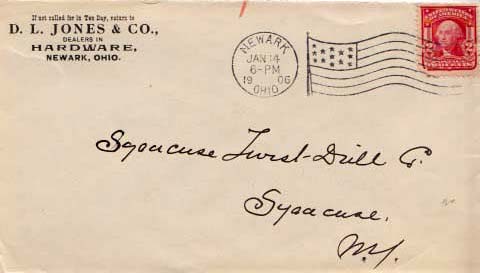 If not called for in Ten Day, return to
D. L. JONES & CO.,
DEALERS IN
HARDWARE,
NEWARK, OHIO.
NEWARK
JAN 14
6-PM
1906
OHIO
2 2
Syracuse Twist-Drill Co.
Syracuse.
N.Y.